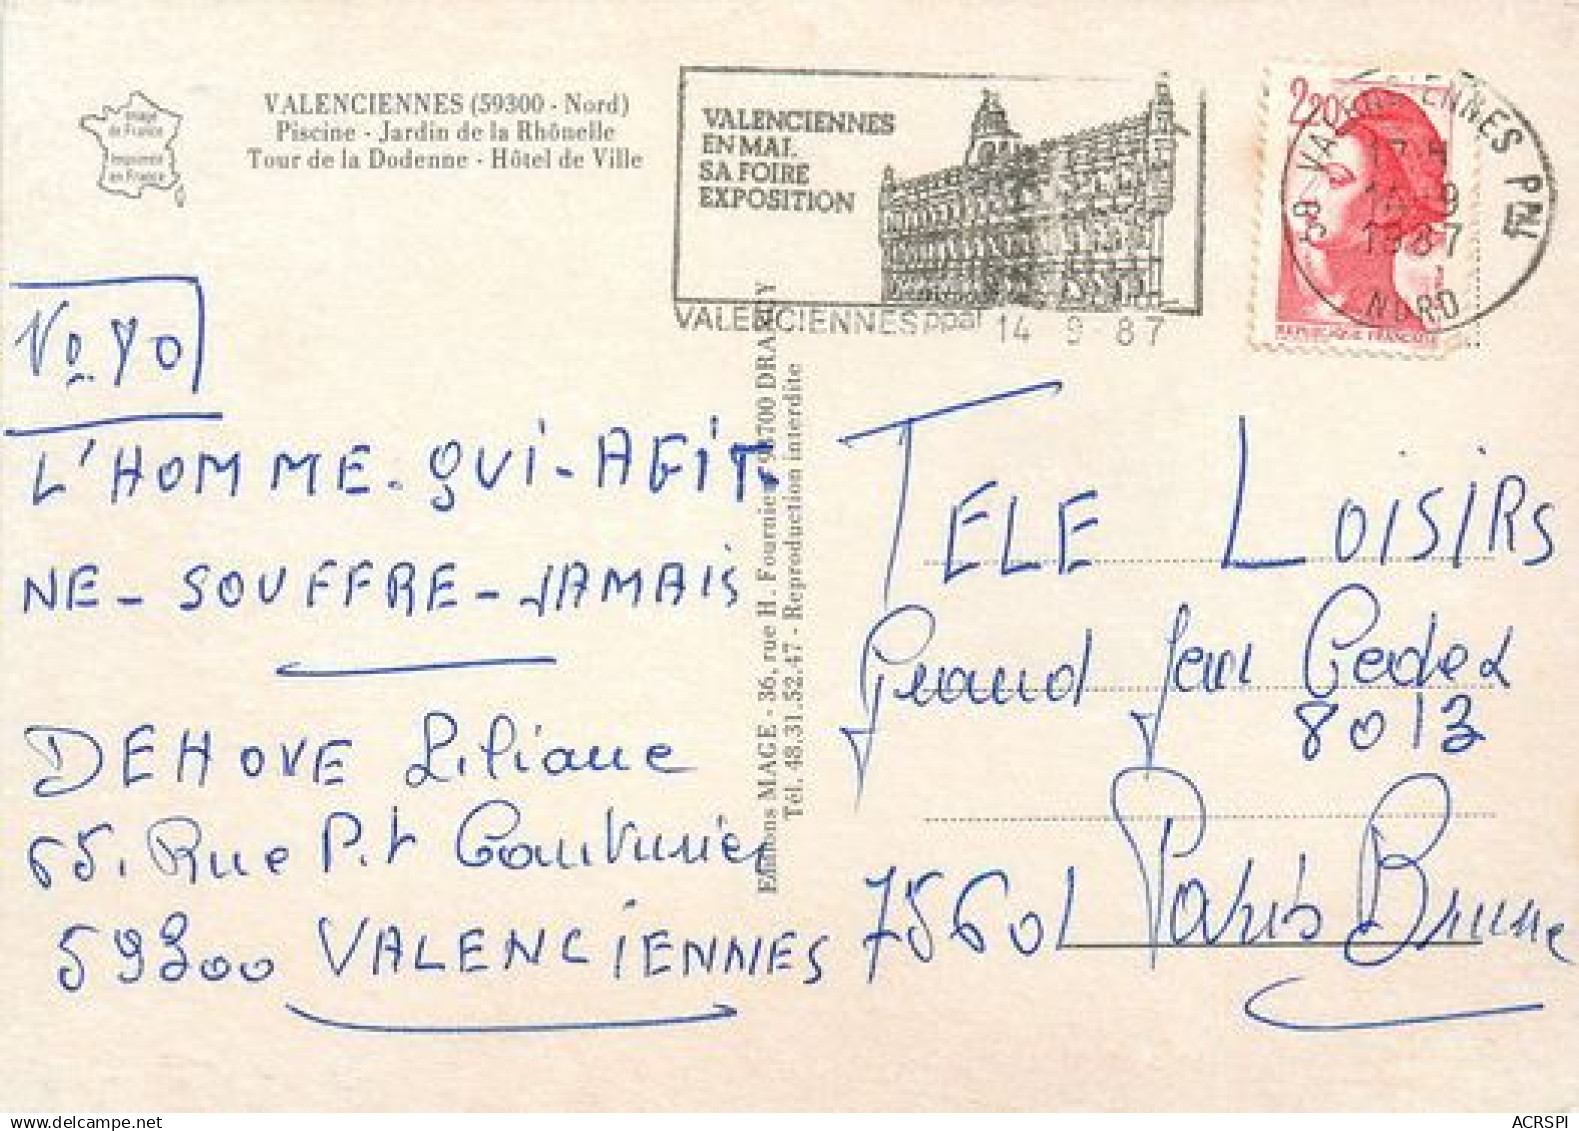 Image
de France
Imprimé
en France
VALENCIENNES (59300 - Nord)
Piscine - Jardin de la Rhônelle
Tour de la Dodenne - Hôtel de Ville
VALENCIENNES
EN MAI.
SA FOIRE
EXPOSITION
VALENCIENNES ppal 14 9 87
2,20
59 VALENCIENNES PPAL
17 H
14-9
1987
NORD
REPUBLIQUE FRANCAISE
No 70
L'HOMME-QUI-AGIT
NE-SOUFFRE-JAMAIS
DEHOVE Liliane
65. Rue
59300 VALENCIENNES
Editions MAGE - 36, rue H. Fournier - 93700 DRANCY
Tél. 48.31.52.47 - Reproduction interdite
TELE LOISIRS
Grand Jeu Cedex
8013
75601 Paris Brune
ACRSPI